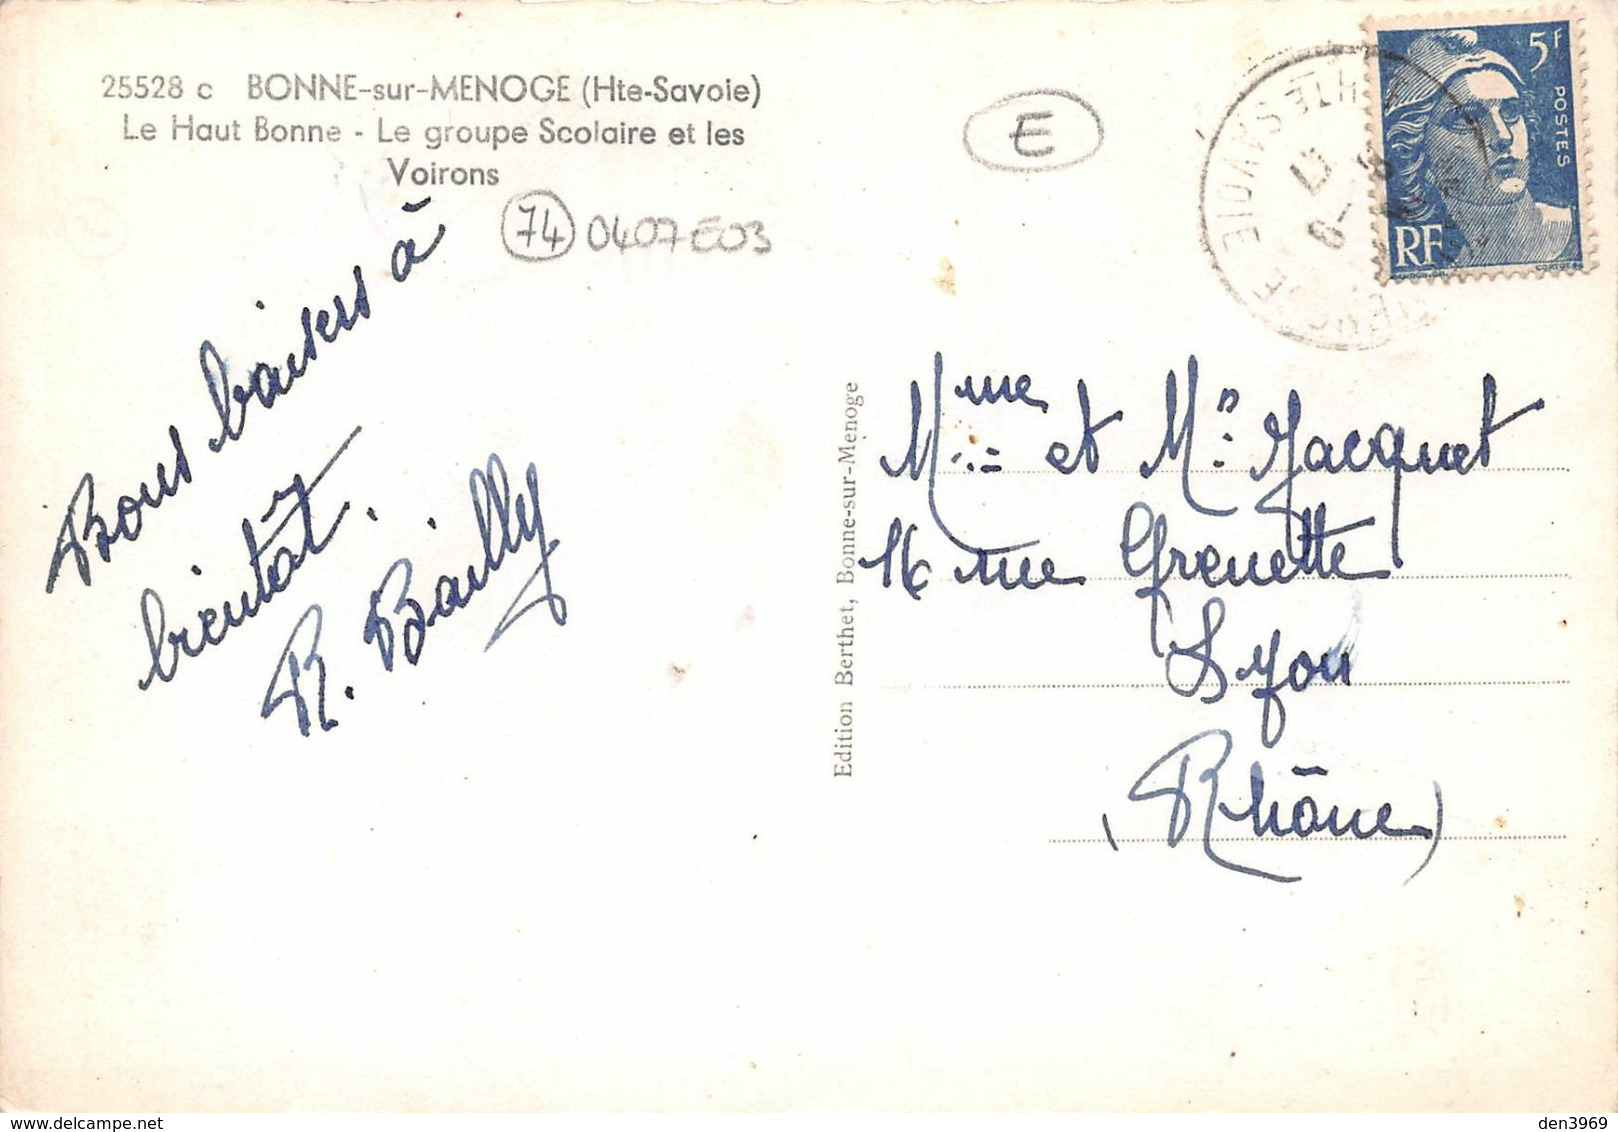 25528 c BONNE-sur-MENOGE (Hte-Savoie)
Le Haut Bonne - Le groupe Scolaire et les
Voirons
74 0407E03
E
5F
POSTES
RF
HTE SAVOIE
Bons baisers à
bientôt.
R. Bailly
Edition Berthet, Bonne-sur-Menoge
Mme et Mr Jacquet
16 rue Grenette
Lyon
(Rhône)
den3969